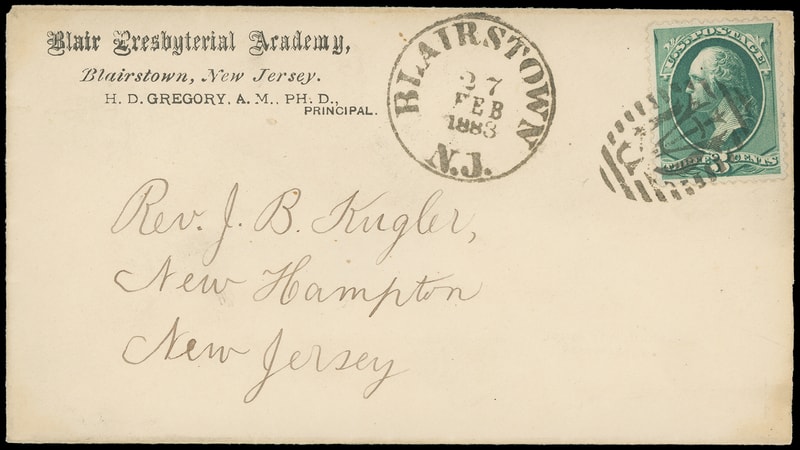 Blair Presbyterial Academy,
Blairstown, New Jersey.
H. D. GREGORY, A. M., PH. D.,
PRINCIPAL.
BLAIRSTOWN
27
FEB
1883
N.J.
U.S. POSTAGE
CENTS
Rev. J. B. Kugler,
New Hampton
New Jersey